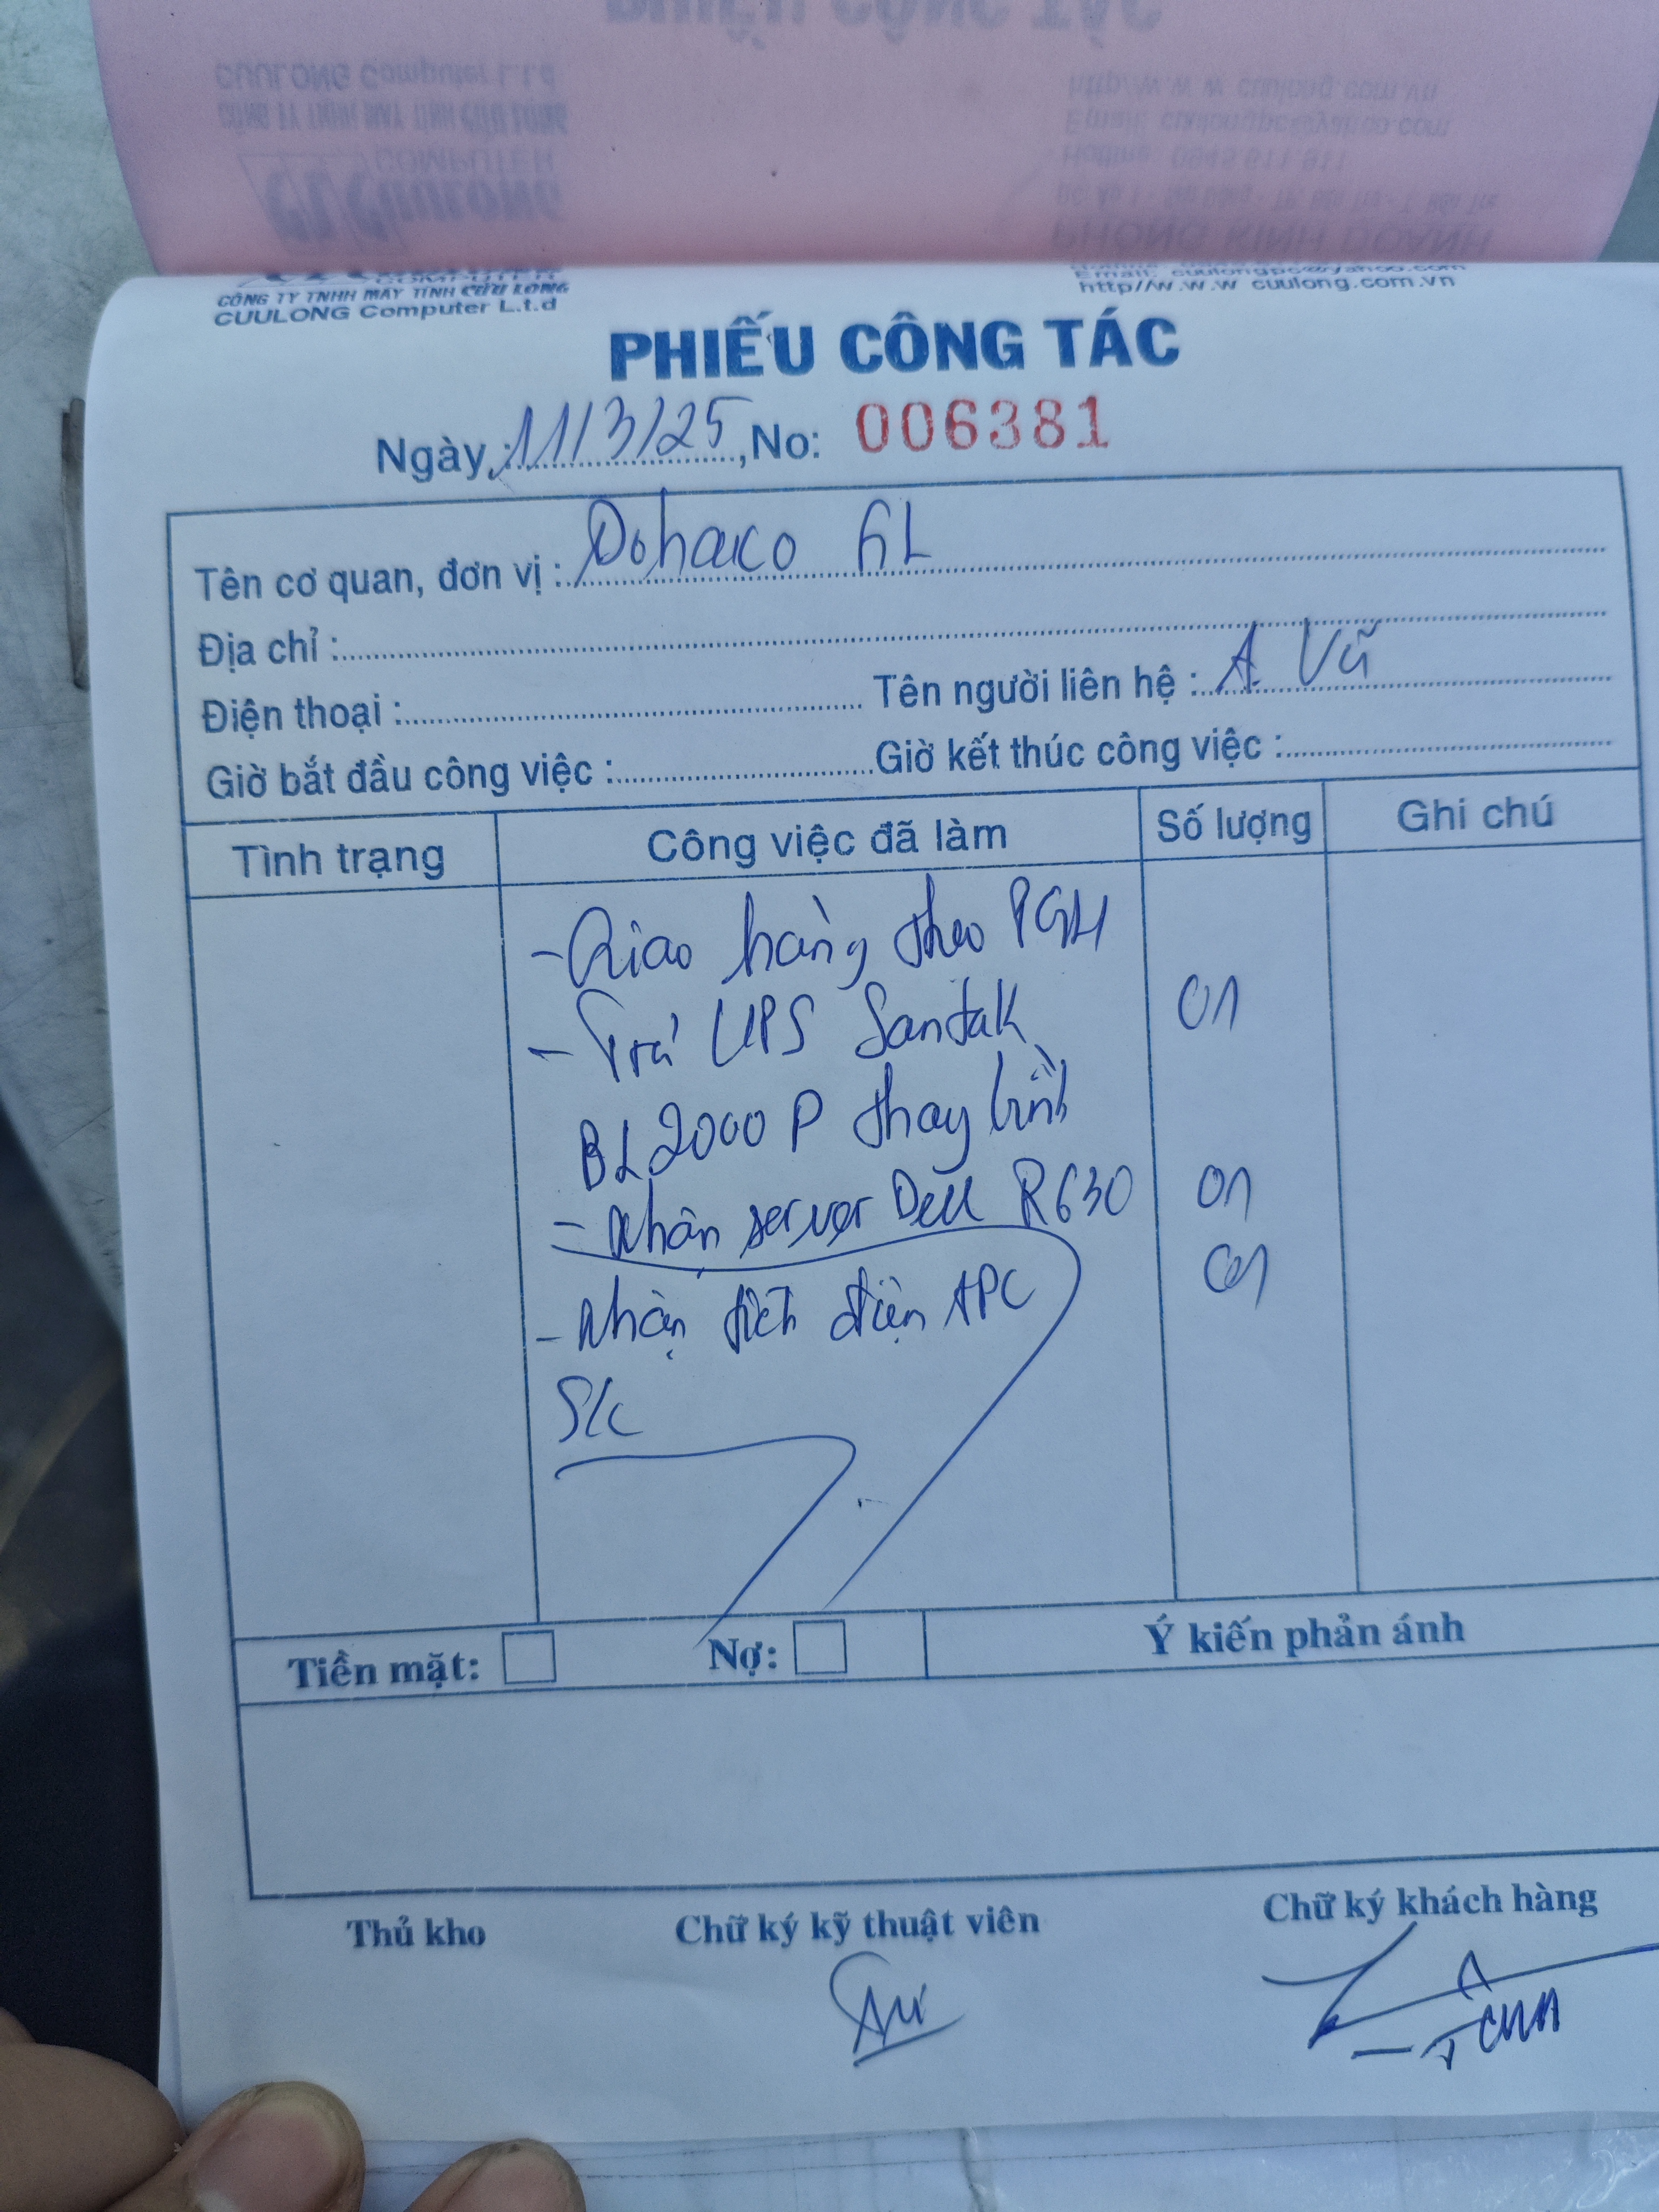 CÔNG TY TNHH MÁY TÍNH CỬU LONG
CUULONG Computer L.t.d
Email: cuulongpc@yahoo.com
http//w.w.w cuulong.com.vn
PHIẾU CÔNG TÁC
Ngày: 11/3/25, No: 006381
Tên cơ quan, đơn vị : Dohaco GL
Địa chỉ :
Điện thoại : Tên người liên hệ : A Vũ
Giờ bắt đầu công việc : Giờ kết thúc công việc :
Tình trạng Công việc đã làm Số lượng Ghi chú
- Giao hàng theo PGH
- Trả UPS Santak 01
BL2000P thay bình
- Nhận server Dell R630 01
- Nhận tích điện APC 01
S/c
Tiền mặt: Nợ: Ý kiến phản ánh
Thủ kho Chữ ký kỹ thuật viên Chữ ký khách hàng